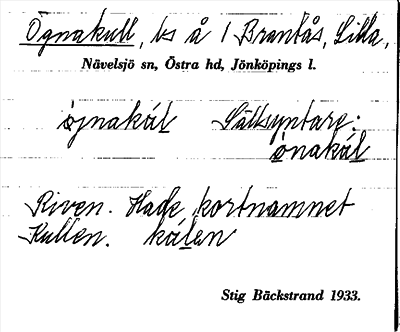 Ögnakull, ls å 1 Brantås, Lilla,
Nävelsjö sn, Östra hd, Jönköpings l.
øjnakúl Sällsyntare:
ønakúl
Riven. Hade kortnamnet
Kullen. kúlen
Stig Bäckstrand 1933.